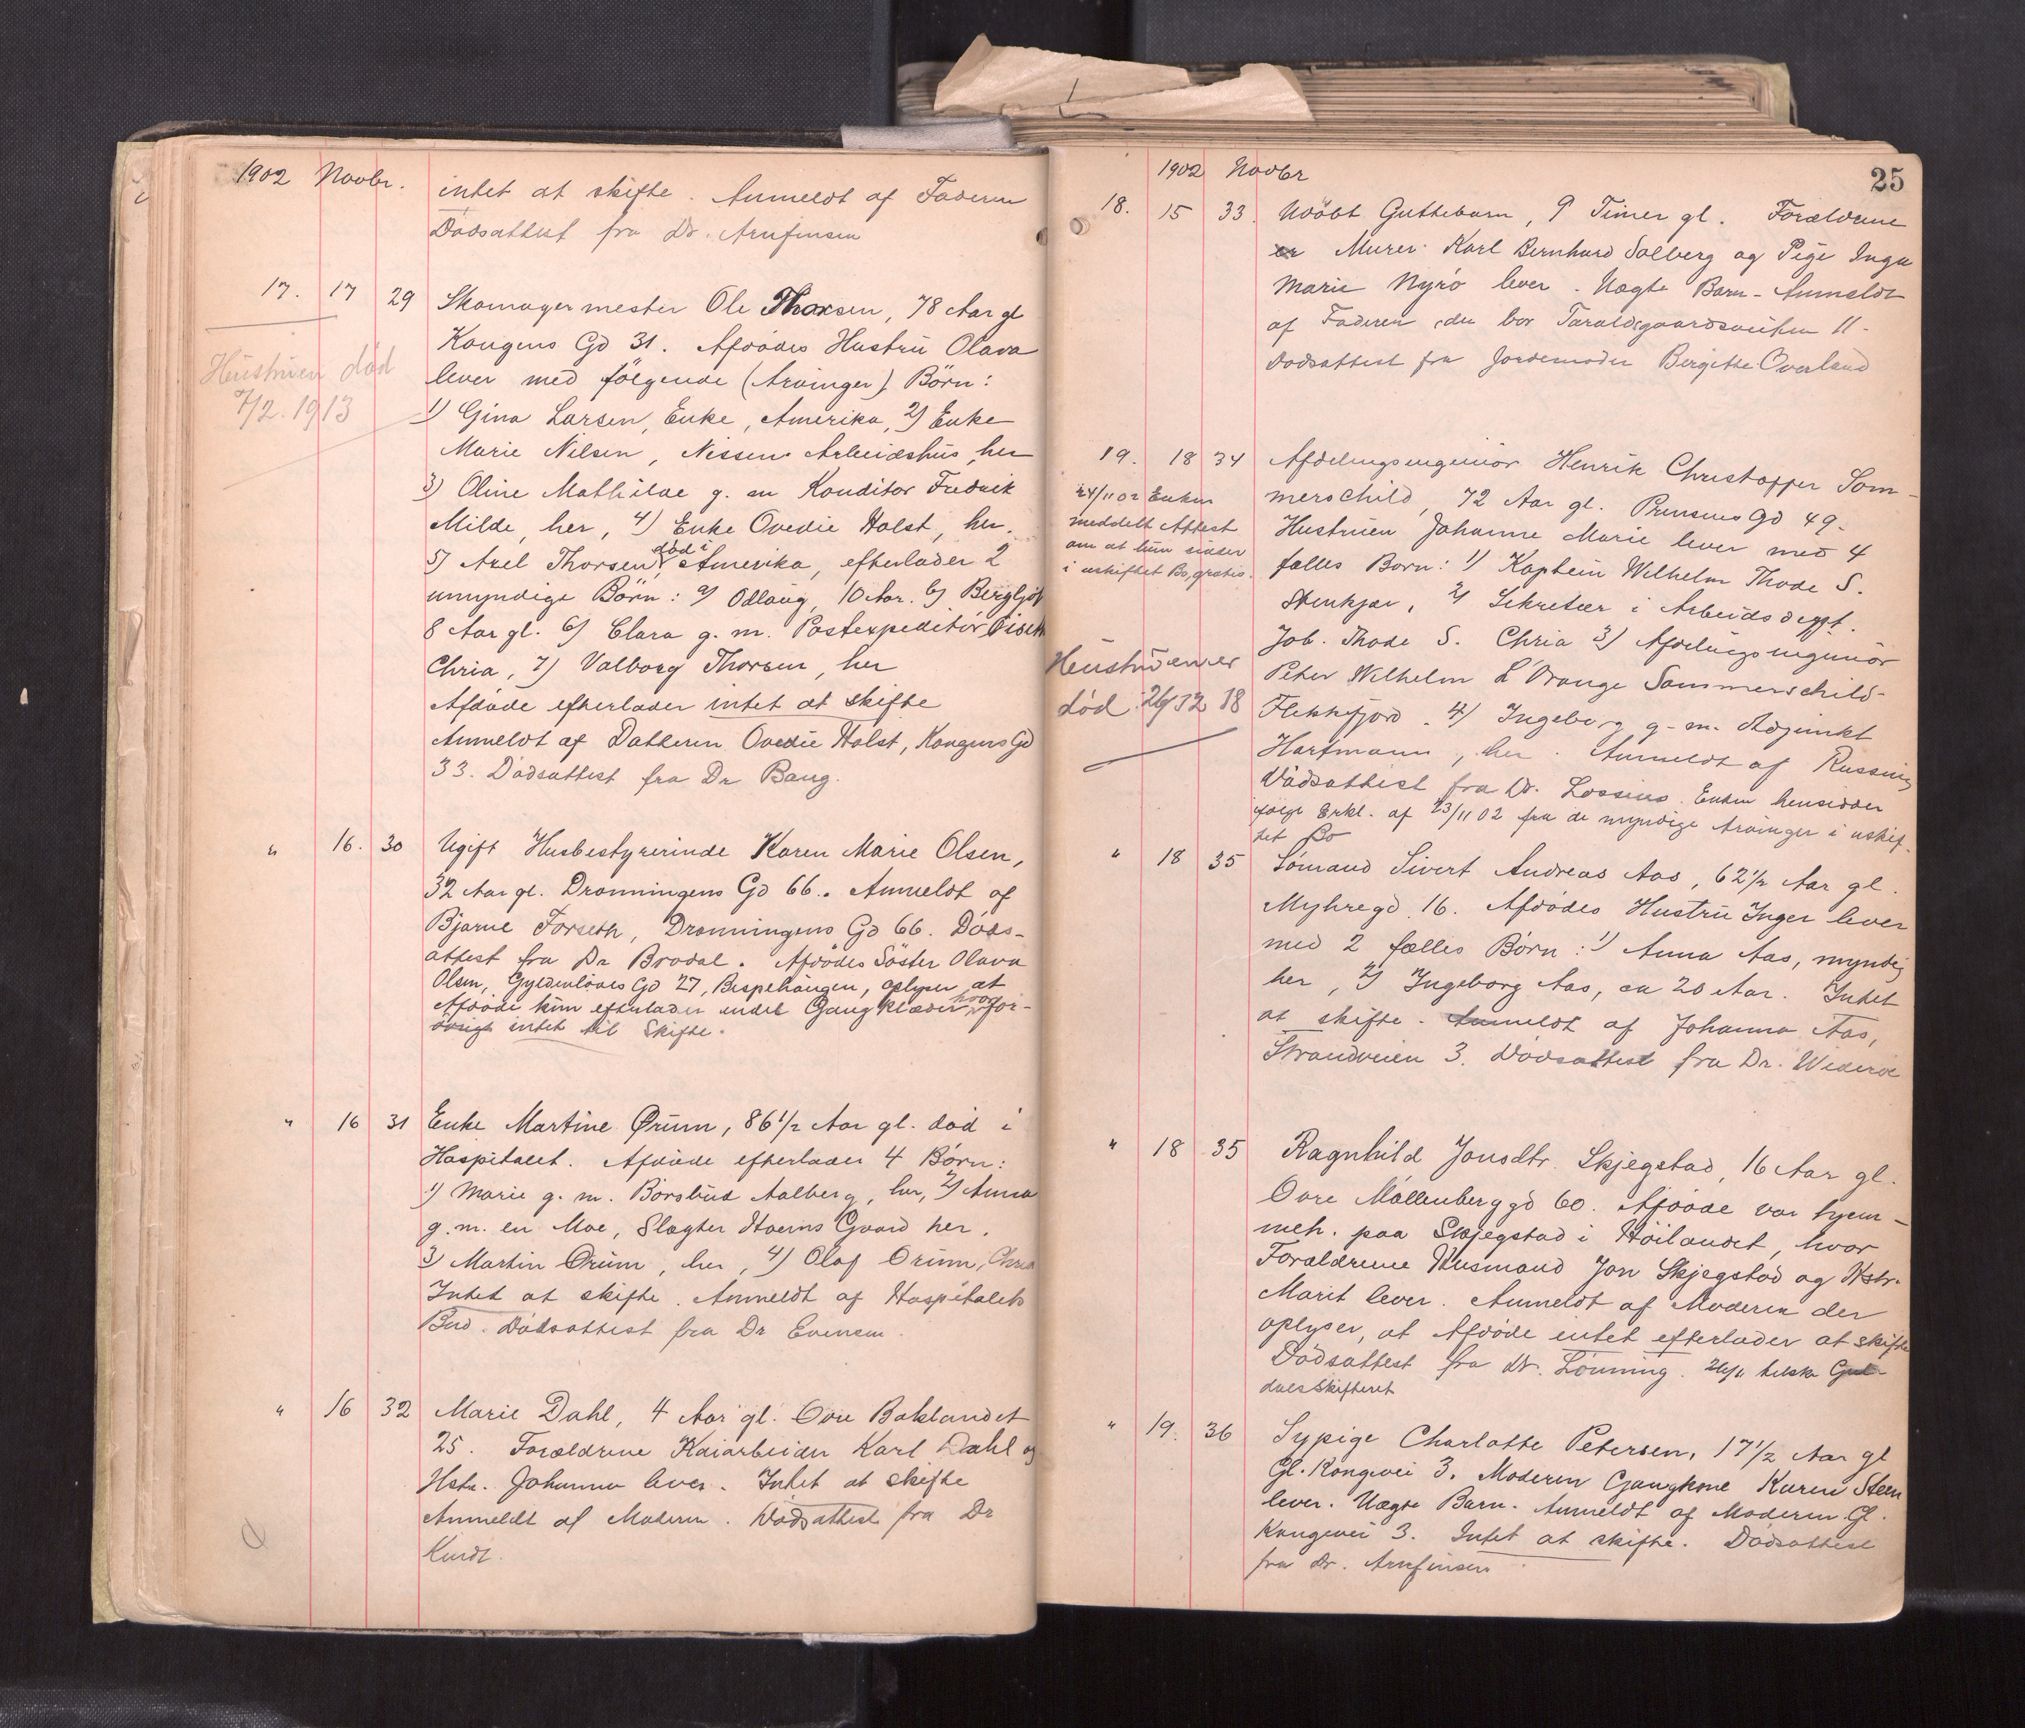 1902 Novbr.
intet at skifte. Anmeldt af Faderen
Dødsattest fra Dr. Arnfinsen
17. 17 29 Skomagermester Ole Thorsen, 78 Aar gl
Kongens Gd 31. Afdødes Hustru Olava
lever med følgende (Arvinger) Börn:
1) Gina Larsen, Enke, Amerika, 2) Enke
Marie Nilsen, Nissens Arbeidshus, her
3) Oline Mathilde g. m Konditor Fredrik
Milde, her, 4) Enke Ovedie Holst, her.
5) Axel Thorsen, död i Amerika, efterlader 2
umyndige Börn: a) Odlaug, 10 Aar. b) Bergljot
8 Aar gl. 6) Clara g. m. Postexpeditör
Chria, 7) Valborg Thorsen, her
Afdøde efterlader intet at skifte
Anmeldt af Datteren Ovedie Holst, Kongens Gd
33. Dødsattest fra Dr Bang.
Hustruen död
7/2. 1913
" 16. 30 Ugift Husbestyrerinde Karen Marie Olsen,
32 Aar gl. Dronningens Gd 66. Anmeldt af
Bjarne Forseth, Dronningens Gd 66. Døds-
attest fra Dr Brodal. Afdødes Söster Olava
Olsen, Gyldenlöves Gd 27, Bispehaugen, oplyser at
Afdøde kun efterlader endel Gangklæder, hvorfor-
övrigt intet til Skifte.
" 16 31 Enke Martine Ørum, 86 1/2 Aar gl. død i
Hospitalet. Afdøde efterlader 4 Børn:
1) Marie g. m. Børsbud Aalberg, her, 2) Anna
g. m. en Moe, Slagter Hoems Gaard her.
3) Martin Ørum, her, 4) Olaf Ørum, Chria
Intet at skifte. Anmeldt af Hospitalets
Bud. Dødsattest fra Dr Evensen.
" 16 32 Marie Dahl, 4 Aar gl. Øvre Baklandet
25. Forældrene Kaiarbeider Karl Dahl og
Hstr. Johanna lever. Intet at skifte
Anmeldt af Moderen. Dødsattest fra Dr
Kindt.
25
1902 Novbr
18. 15 33. Udöbt Guttebarn, 9 Timer gl. Forældrene
er Murer Karl Bernhard Solberg og Pige Inga
Marie Nyrö lever. Uægte Barn. Anmeldt
af Faderen, der bor Taraldsgaardsveiten 11.
Dødsattest fra Jordemoder Bergitte Overland
19. 18 34 Afdelingsingeniør Henrik Christopher Som-
merschild, 72 Aar gl. Prinsens Gd 49.
Hustruen Johanne Marie lever med 4
fælles Børn: 1) Kaptein Wilhelm Thode S.
Stenkjær, 2) Sekretær i Arbeidsdept.
Job. Thode S. Chria 3) Afdelingsingeniør
Peter Wilhelm L'Orange Sommerschild
Flekkefjord. 4) Ingeborg g. m. Adjunkt
Hartmann, her. Anmeldt af
Dødsattest fra Dr. Lossius. Enken hensidder
ifølge Erkl. af 23/11 02 fra de myndige Arvinger i uskif-
tet Bo
24/11 02 Enken
meddelt Attest
om at hun sidder
i uskiftet Bo, gratis.
død 26/12 18
" 18 35 Sømand Sivert Andreas Aas, 62 1/2 Aar gl.
Myhregd. 16. Afdødes Hustru Inger lever
med 2 fælles Børn: 1) Anna Aas, myndig
her, 2) Ingeborg Aas, ca 20 Aar. Intet
at skifte. Anmeldt af Johanna Aas,
Strandveien 3. Dødsattest fra Dr. Widerøe
" 18 35 Ragnhild Jonsdtr. Skjegstad, 16 Aar gl.
Øvre Møllenberggd 60. Afdøde var hjem-
meh. paa Skjegstad i Höilandet, hvor
Forældrene Husmand Jon Skjegstad og Hstr.
Marit lever. Anmeldt af Moderen der
oplyser, at Afdøde intet efterlader at skifte
Dødsattest fra Dr. Lønning. 26/11 tilskr Gul-
dalsskifteret
" 19. 36 Sypige Charlotte Petersen, 17 1/2 Aar gl
Gl. Kongevei 3. Moderen Gangkone Karen Steen
lever. Uægte Barn. Anmeldt af Moderen Gl.
Kongevei 3. Intet at skifte. Dødsattest
fra Dr. Arnfinsen